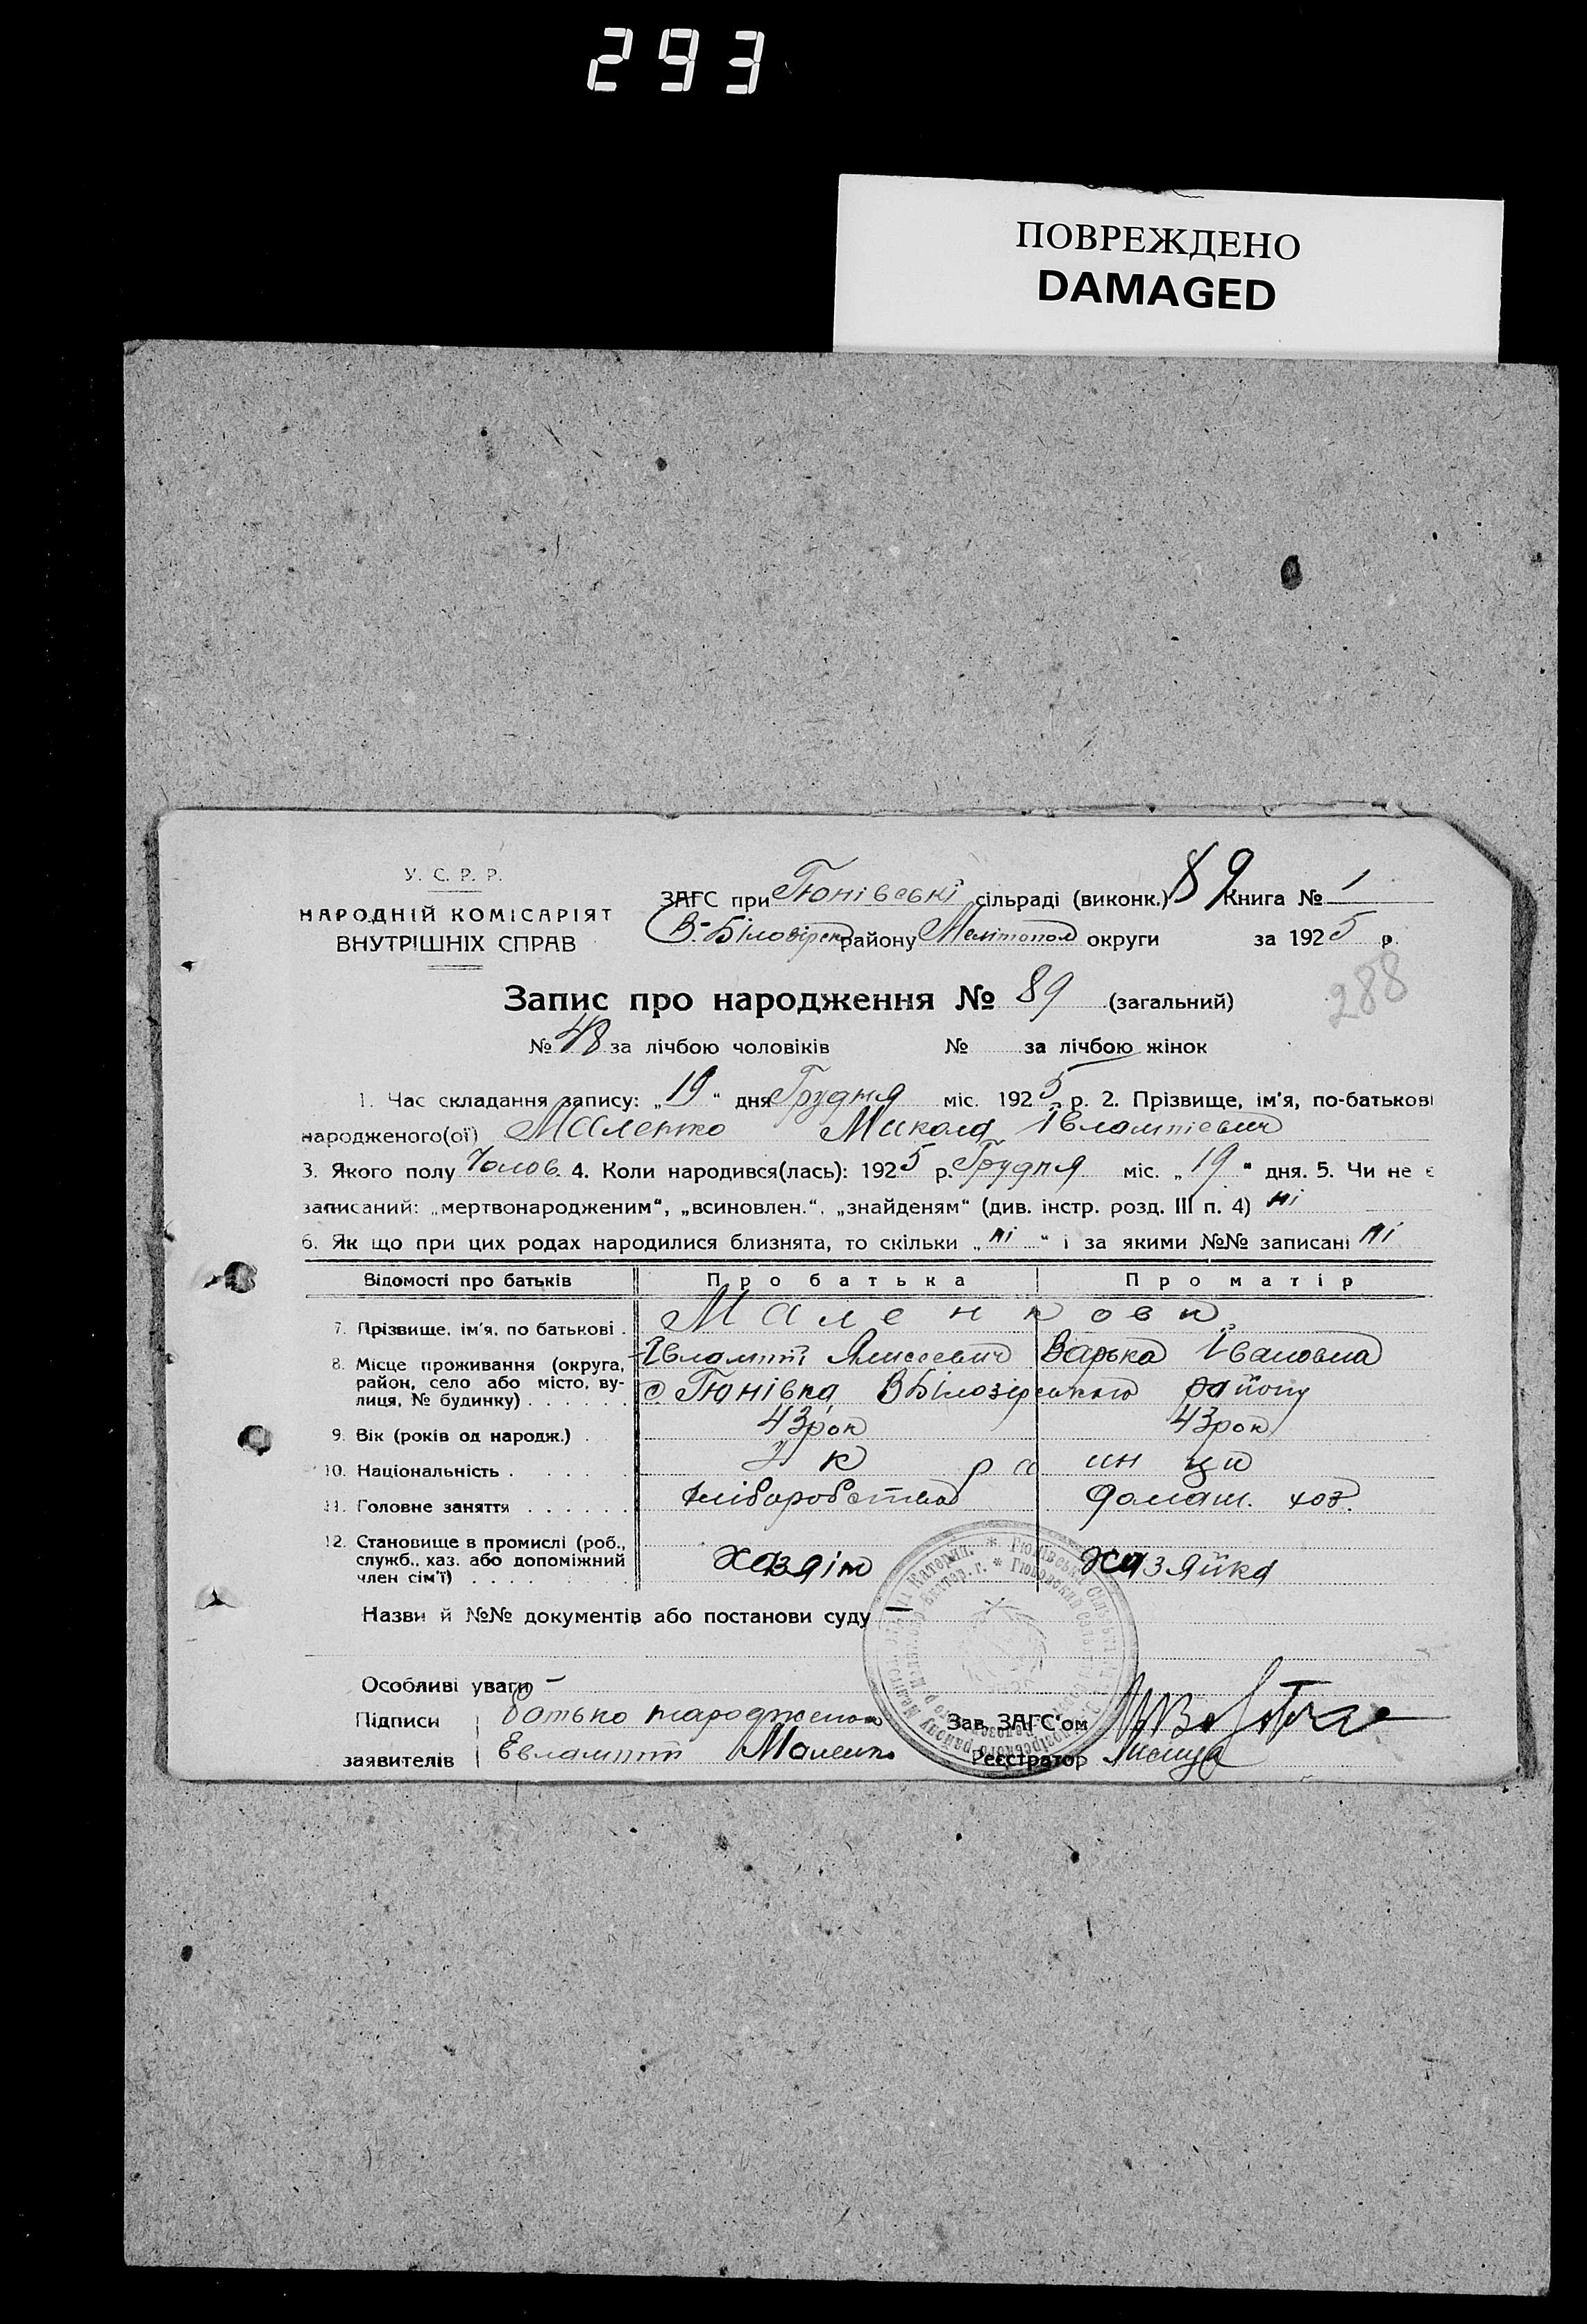 293
ПОВРЕЖДЕНО
DAMAGED
У. С. Р. Р.
НАРОДНІЙ КОМІСАРІЯТ
ВНУТРІШНІХ СПРАВ
ЗАГС при Гюнівські сільраді (виконк.) 89 Книга № 1
В-Білозірск району Мелітопол округи за 1925 р.
288
Запис про народження № 89 (загальний)
№ 48 за лічбою чоловіків № за лічбою жінок
1. Час складання запису: „19“ дня Грудня міс. 1925 р. 2. Прізвище, ім'я, по-батькові
народженого(ої) Маленко Микола Івлампієвич
3. Якого полу Чолов. 4. Коли народився(лась): 1925 р. Грудня міс. „19“ дня. 5. Чи не є
записаний: „мертвонародженим“, „всиновлен.“, „знайденям“ (див. інстр. розд. III п. 4) ні
6. Як що при цих родах народилися близнята, то скільки „ні“ і за якими №№ записані ні
Відомості про батьків Про батька Про матір
7. Прізвище, ім'я, по батькові . Маленкови
Івлампій Варька Івановна
8. Місце проживання (округа, район, село або місто, вулиця, № будинку) . . . . . . с. Гюнівка ВБілозірського району
9. Вік (років од народж.) . 43 рок 43 рок
10. Національність . . . . . Украинци
11. Головне заняття . . . . . . Хліборобство домаш. хоз.
12. Становище в промислі (роб., служб., хаз. або допоміжний член сім'ї) . . . . хазяїн хазяйка
Назви й №№ документів або постанови суду —
Особливі уваги —
Підписи заявителів батько народженого
Евлампий Маленко
Зав. ЗАГС'ом
Реєстратор Лисиця